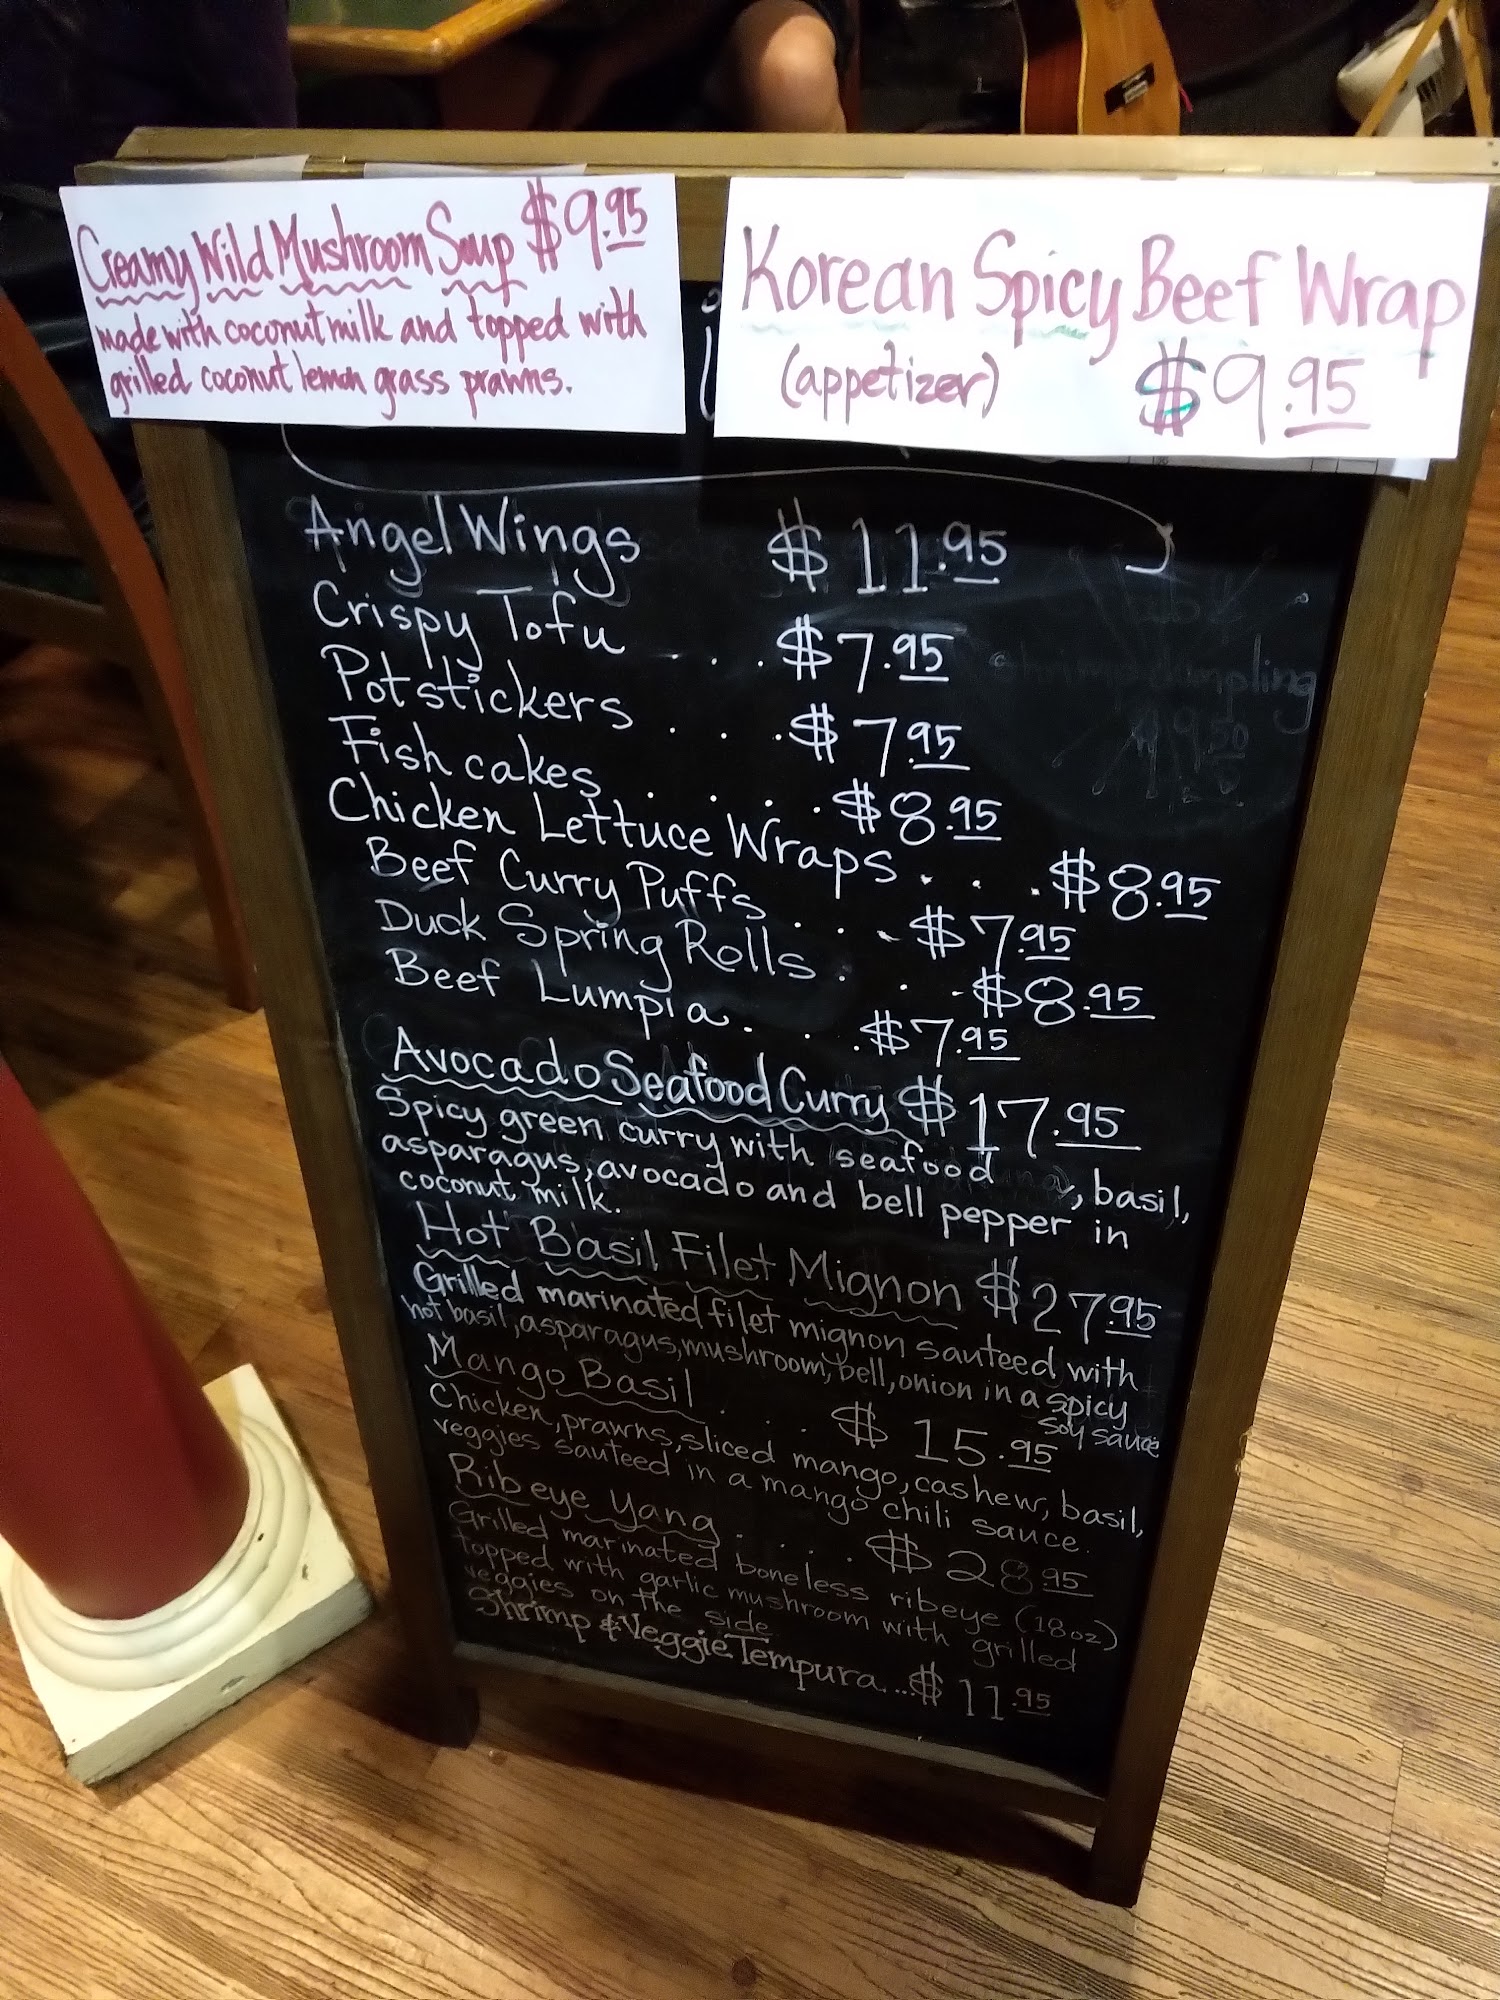 Creamy Wild Mushroom Soup $9.95
made with coconut milk and topped with
grilled coconut lemon grass prawns.
Korean Spicy Beef Wrap
(appetizer) $9.95
Angel Wings $11.95
Crispy Tofu ... $7.95
Potstickers ... $7.95
Fish cakes .... $8.95
Chicken Lettuce Wraps ... $8.95
Beef Curry Puffs ... $7.95
Duck Spring Rolls ... $8.95
Beef Lumpia ... $7.95
Avocado Seafood Curry $17.95
Spicy green curry with seafood , basil,
asparagus, avocado and bell pepper in
coconut milk.
Hot Basil Filet Mignon $27.95
Grilled marinated filet mignon sauteed with
hot basil, asparagus, mushroom, bell, onion in a spicy
soy sauce
Mango Basil ... $15.95
Chicken, prawns, sliced mango, cashew, basil,
veggies sauteed in a mango chili sauce.
Ribeye Yang .... $28.95
Grilled marinated boneless ribeye (18oz)
topped with garlic mushroom with grilled
veggies on the side
Shrimp & Veggie Tempura.... $11.95